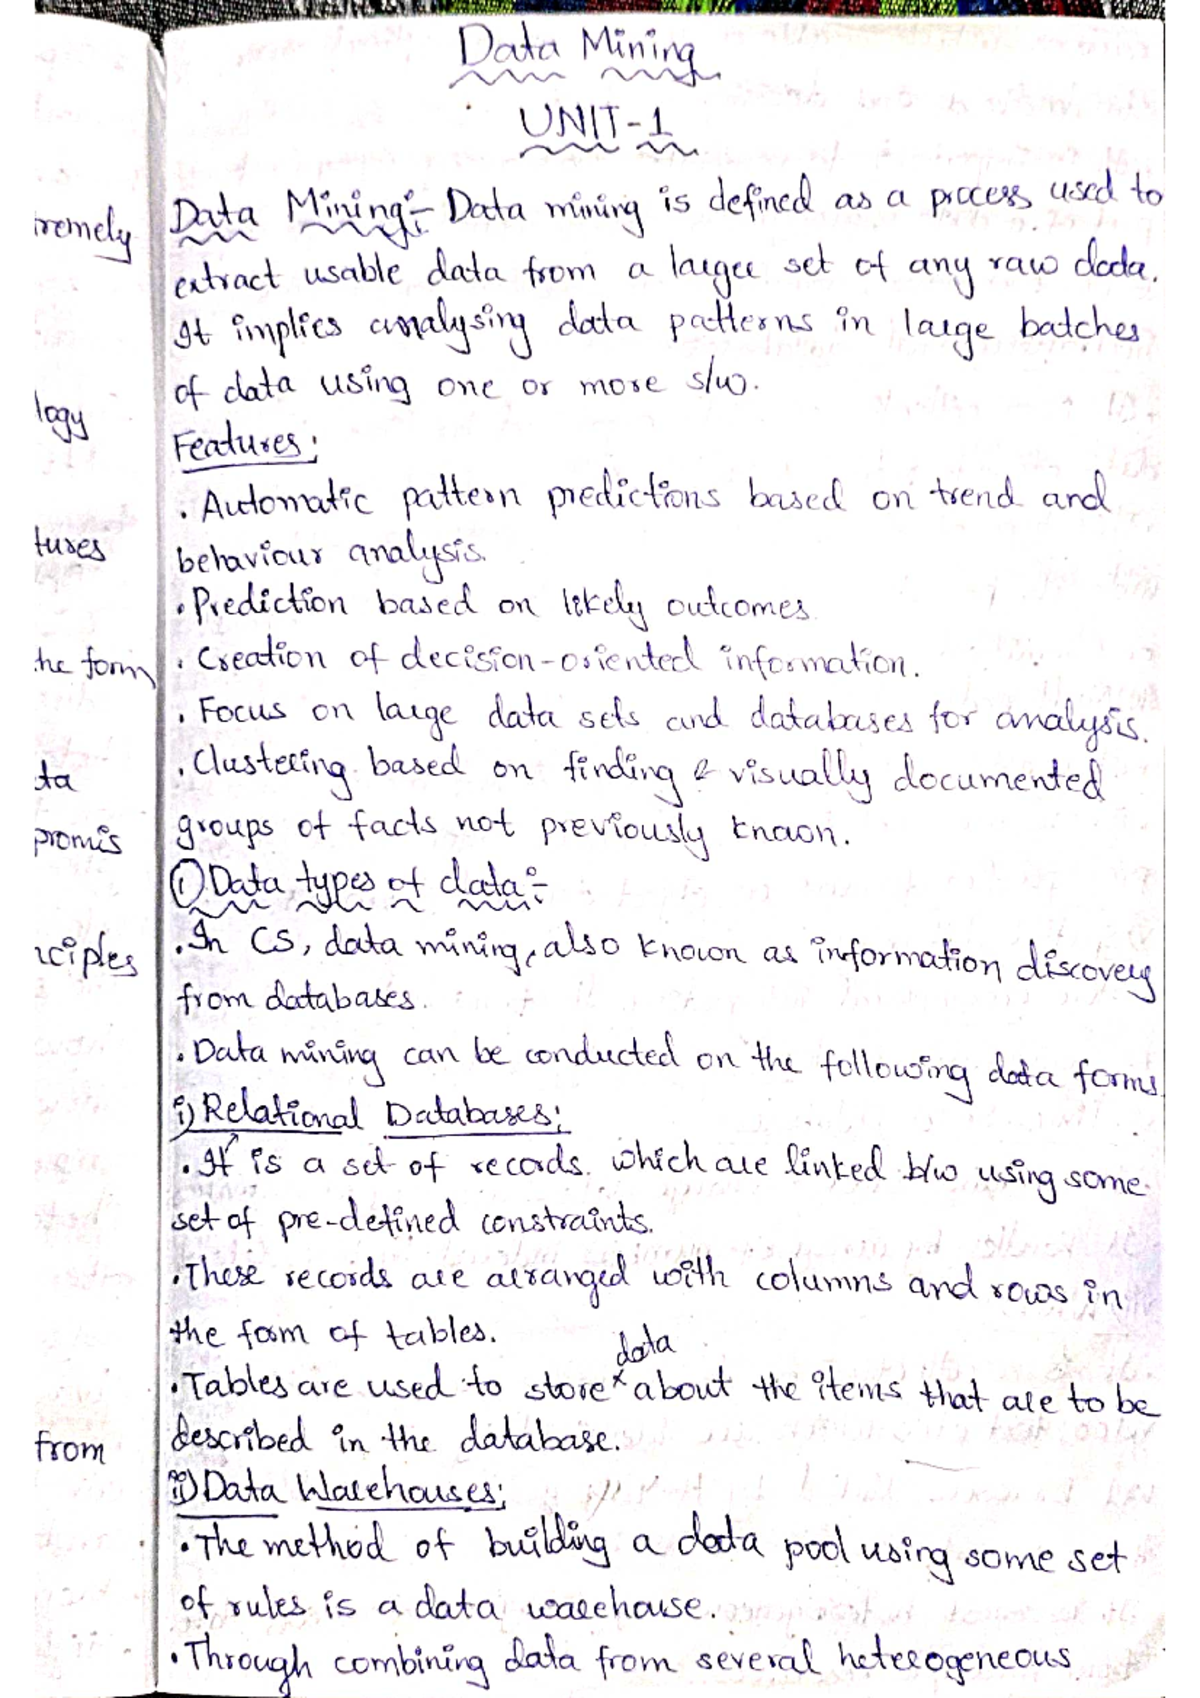 Data Mining
UNIT-1
Data Mining:- Data mining is defined as a process used to
extract usable data from a larger set of any raw data.
It implies analysing data patterns in large batches
of data using one or more s/w.
Features:
. Automatic pattern predictions based on trend and
behaviour analysis.
. Prediction based on likely outcomes
. Creation of decision-oriented information.
. Focus on large data sets and databases for analysis.
. Clustering based on finding & visually documented
groups of facts not previously known.
① Data types of data:-
. In CS, data mining, also known as information discovery
from databases.
. Data mining can be conducted on the following data forms
i) Relational Databases:
. It is a set of records. which are linked b/w using some
set of pre-defined constraints.
. These records are arranged with columns and rows in
the form of tables.
data
. Tables are used to store about the items that are to be
described in the database.
ii) Data Warehouses:
. The method of building a data pool using some set
of rules is a data warehouse.
. Through combining data from several heterogeneous
remely
logy
tures
he form
ta
promis
ciples
from